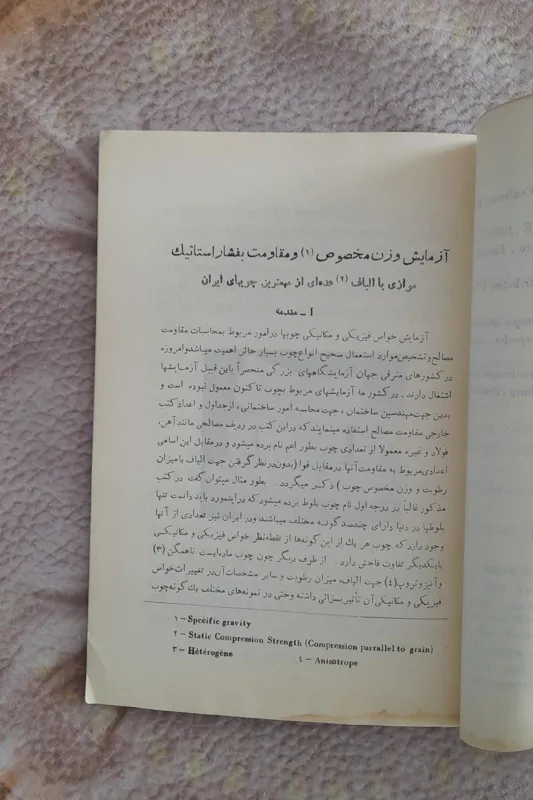 آزمایش وزن مخصوص (۱) و مقاومت بفشار استاتیک
موازی با الیاف (۲) عده‌ای از مهمترین چوبهای ایران
I ـ مقدمه
آزمایش خواص فیزیکی و مکانیکی چوبها در امور مربوط بمحاسبات مقاومت
مصالح و تشخیص موارد استعمال صحیح انواع چوب بسیار حائز اهمیت میباشد و امروزه
در کشورهای مترقی جهان آزمایشگاههای بزرگی منحصراً باین قبیل آزمایشها
اشتغال دارند . در کشور ما آزمایشهای مربوط بچوب تا کنون معمول نبوده است و
بدین جهت مهندسین ساختمان ، جهت محاسبه امور ساختمانی ، از جداول و اعداد کتب
خارجی مقاومت مصالح استفاده مینمایند که در این کتب در ردیف مصالحی مانند آهن،
فولاد و غیره معمولاً از تعدادی چوب بطور اعم نام برده میشود و در مقابل این اسامی
اعدادی مربوط به مقاومت آنها در مقابل قوا (بدون در نظر گرفتن جهت الیاف یا میزان
رطوبت و وزن مخصوص چوب ) ذکر میگردد . بطور مثال میتوان گفت در کتب
مذکور غالباً در درجه اول نام چوب بلوط برده میشود که در اینمورد باید دانست تنها
بلوطها در دنیا دارای چند صد گونه مختلف میباشند و در ایران نیز تعدادی از آنها
وجود دارد که چوب هر یک از این گونه‌ها از نقطه‌نظر خواص فیزیکی و مکانیکی
بایکدیگر تفاوت فاحش دارد . از طرف دیگر چون چوب ماده‌ایست ناهمگن (۳)
و آنیزوتروپ (٤) جهت الیاف، میزان رطوبت و سایر مشخصات آن در تغییرات خواص
فیزیکی و مکانیکی آن تأثیر بسزائی داشته و حتی در نمونه‌های مختلف یک گونه چوب
۱ – Specific gravity
۲ – Static Compression Strength (Compression parrallel to grain)
۳ – Hétérogène ٤ – Anisotrope